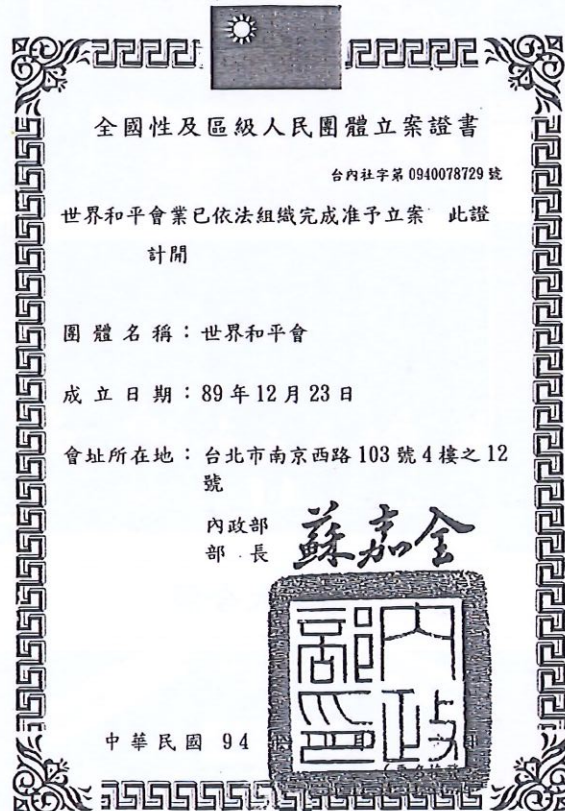 全國性及區級人民團體立案證書
台內社字第 0940078729 號
世界和平會業已依法組織完成准予立案 此證
計開
團體名稱：世界和平會
成立日期：89 年 12 月 23 日
會址所在地：台北市南京西路 103 號 4 樓之 12
號
內政部
部長 蘇嘉全
內政
部印
中華民國 94